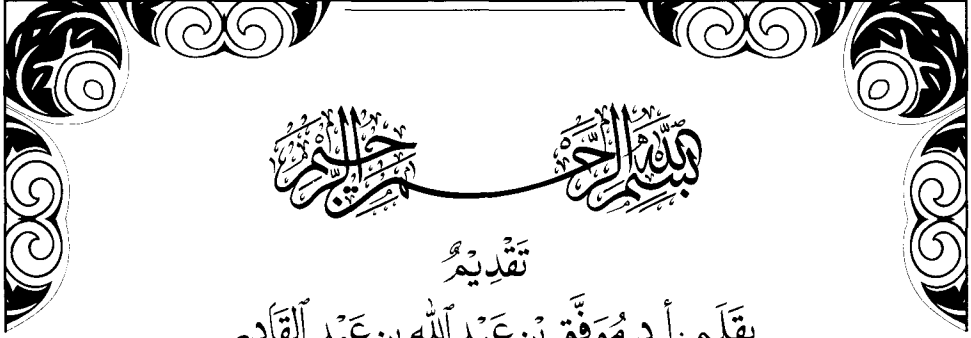 بسم الله الرحمن الرحيم
تَقْدِيْمٌ
بِقَلَم: أ. د. مُوَفَّق بْن عَبْد ٱللّٰه بن عَبْد ٱلْقَادِر